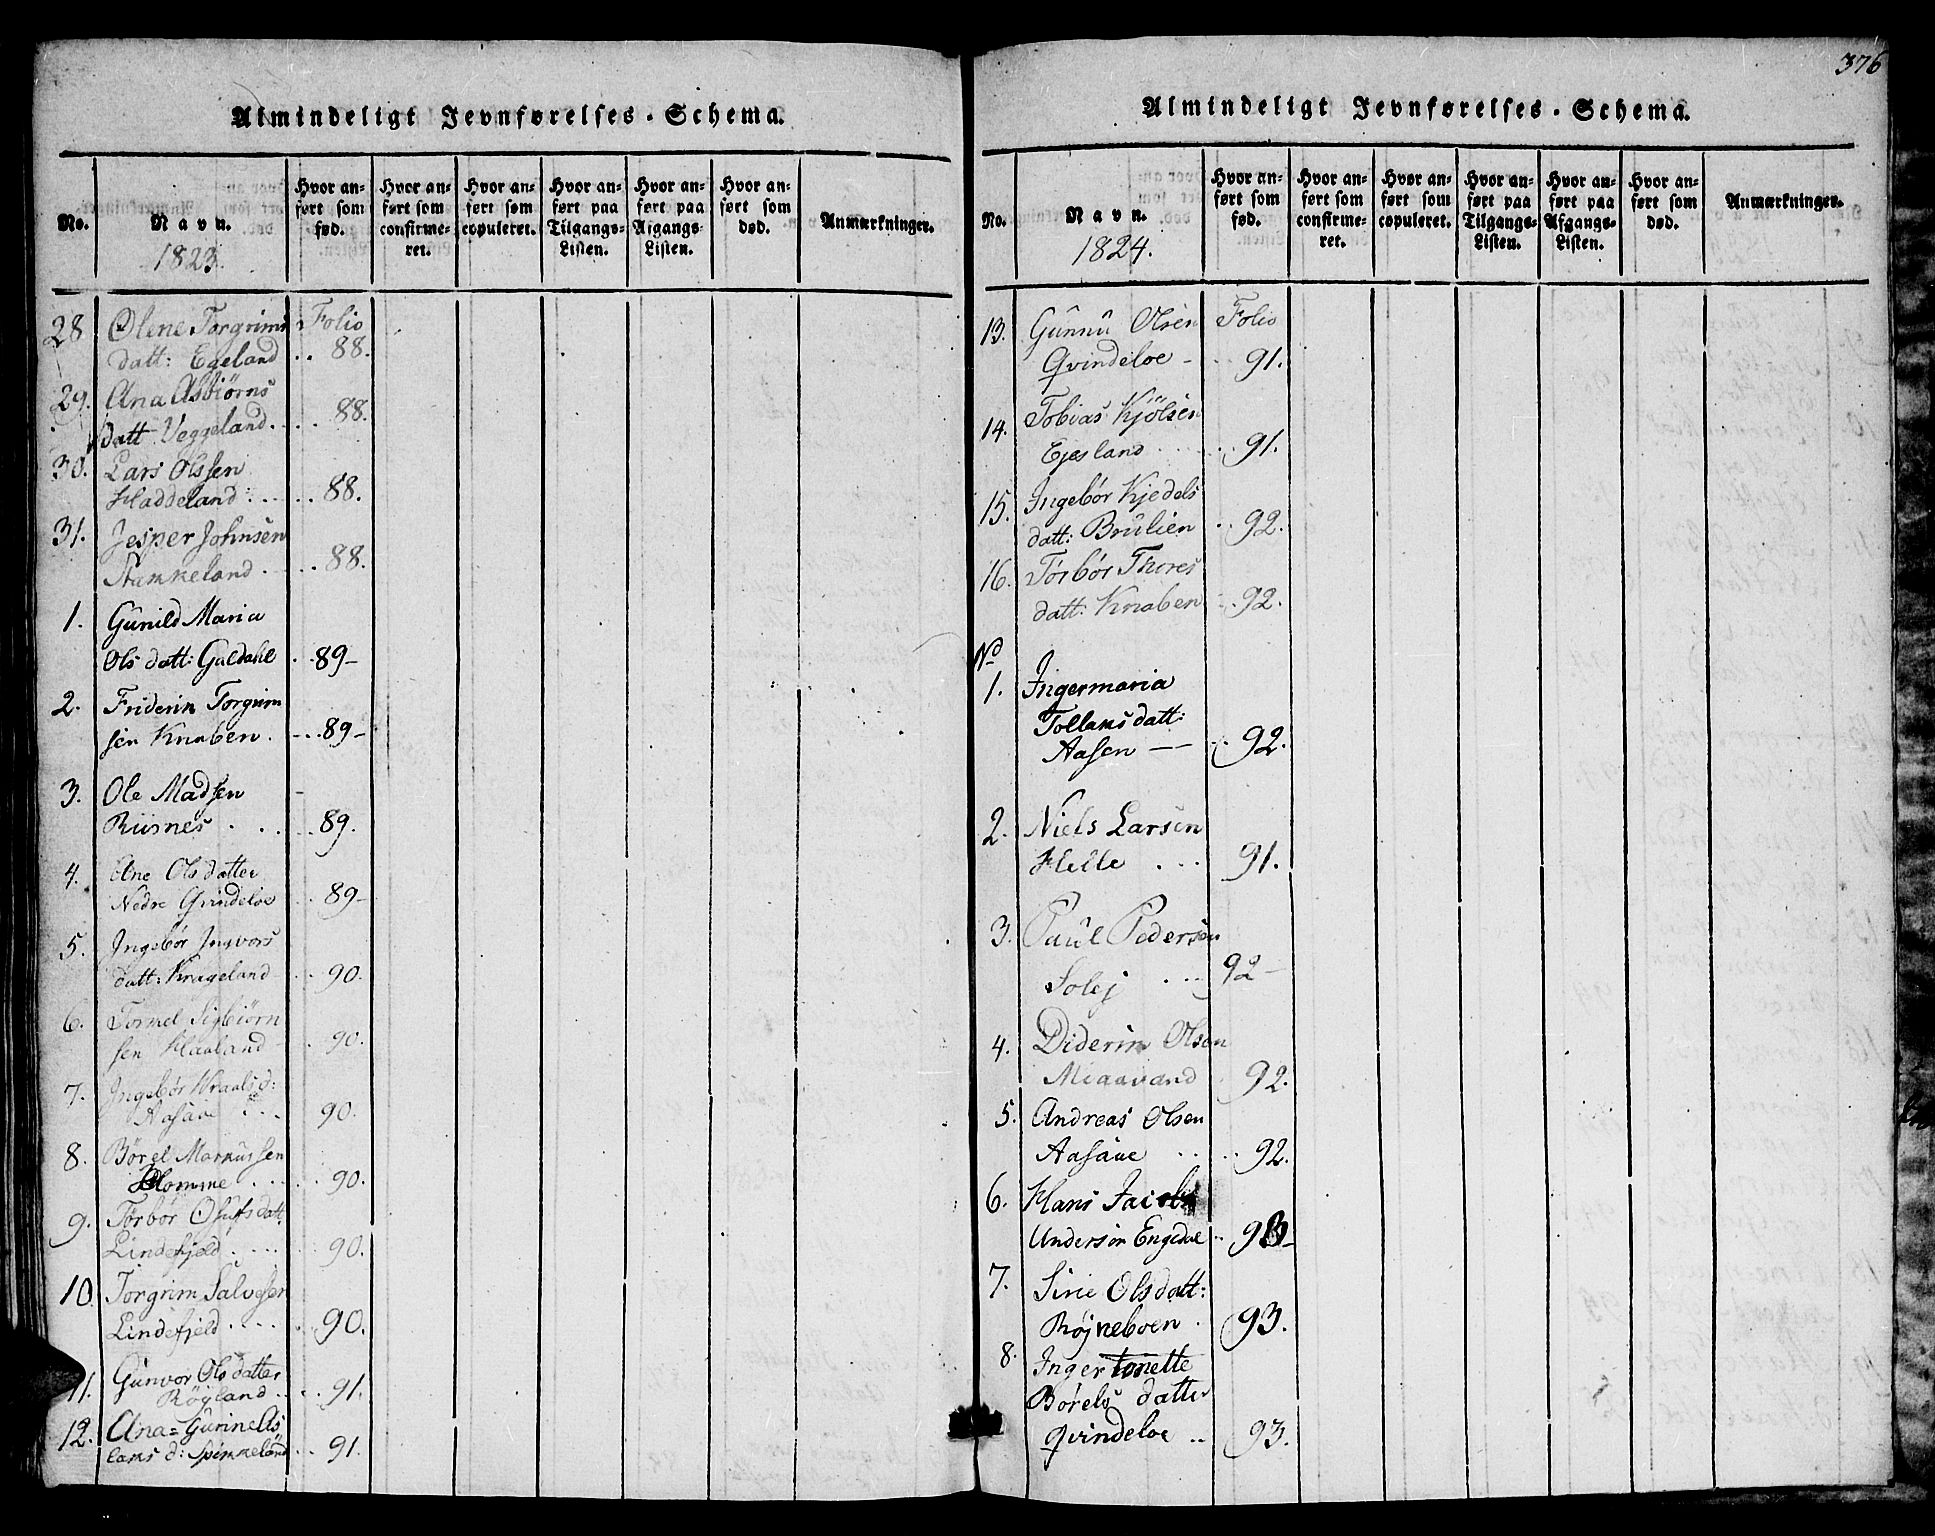 Almindeligt Jevnførelses-Schema.
No.
Navn.
1823.
Hvor anført som fød.
Hvor anført som confirmeret.
Hvor anført som copuleret.
Hvor anført paa Tilgangs-Listen.
Hvor anført paa Afgangs-Listen.
Hvor anført som død.
Anmærkninger.
28 Olene Torgrims Folio
datt: Egeland .. 88.
29. Ana Asbiörns
datt Veggeland. .. 88.
30. Lars Olssen
Haddeland .. 88.
31. Jesper Johnsen
Stamkeland .. 88.
1. Gunild Maria
Ols datt: Galdahl .. 89-
2. Friderin Torgrim
sen Knaben. ... 89-
3. Ole Madsen
Riisnes .... 89.
4. Ane Olsdatter
Nedre Qvindeloe .. 89-
5. Ingebör Ingvors
datt: Krageland .. 90.
6. Tormel Sigbiörn
sen Haaland . 90.
7. Ingebör Kraalsd:
Aasaue ... 90.
8. Börel Markussen
Homme .... 90.
9. Törbör Osufsdatt
Lindefjeld .... 90.
10. Torgrim Salvesen
Lindefjeld .... 90.
11. Gunvor Olsdatter
Röyland .... 91.
12. Ana=Gurine As
lams d: Spinkeland .. 91.
376
Almindeligt Jevnførelses-Schema.
No.
Navn.
1824.
Hvor anført som fød.
Hvor anført som confirmeret.
Hvor anført som copuleret.
Hvor anført paa Tilgangs-Listen.
Hvor anført paa Afgangs-Listen.
Hvor anført som død.
Anmærkninger.
13. Gunnu Olsen Folio
Qvindeloe - .. 91.
14. Tobias Kjölsen
Ejesland .... 91.
15. Ingebör Kjedels
datt: Brulien .. 92.
16. Törbör Thores
datt: Knaben .. 92.
No
1. Ingermaria
Tollaksdatt:
Aasen — .. 92.
2. Niels Larsen
Helle ... 91.
3. Paul Pedersen
Solej ... 92-
4. Diderin Olsen
Miaavand 92.
5. Andreas Olsen
Aasaue .... 92.
6. Hans Jacob
Andersen Engedal .. 93-
7. Sirie Olsdatt:
Röjneboen . 93.
8. Inger tonette
Börels datter
Qvindeloe .. 93.